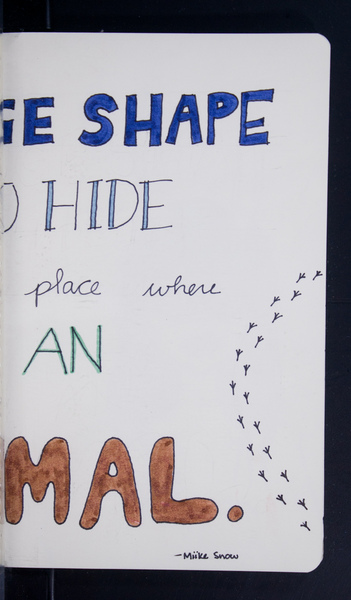 GE SHAPE
O HIDE
place where
AN
MAL.
-Miike Snow